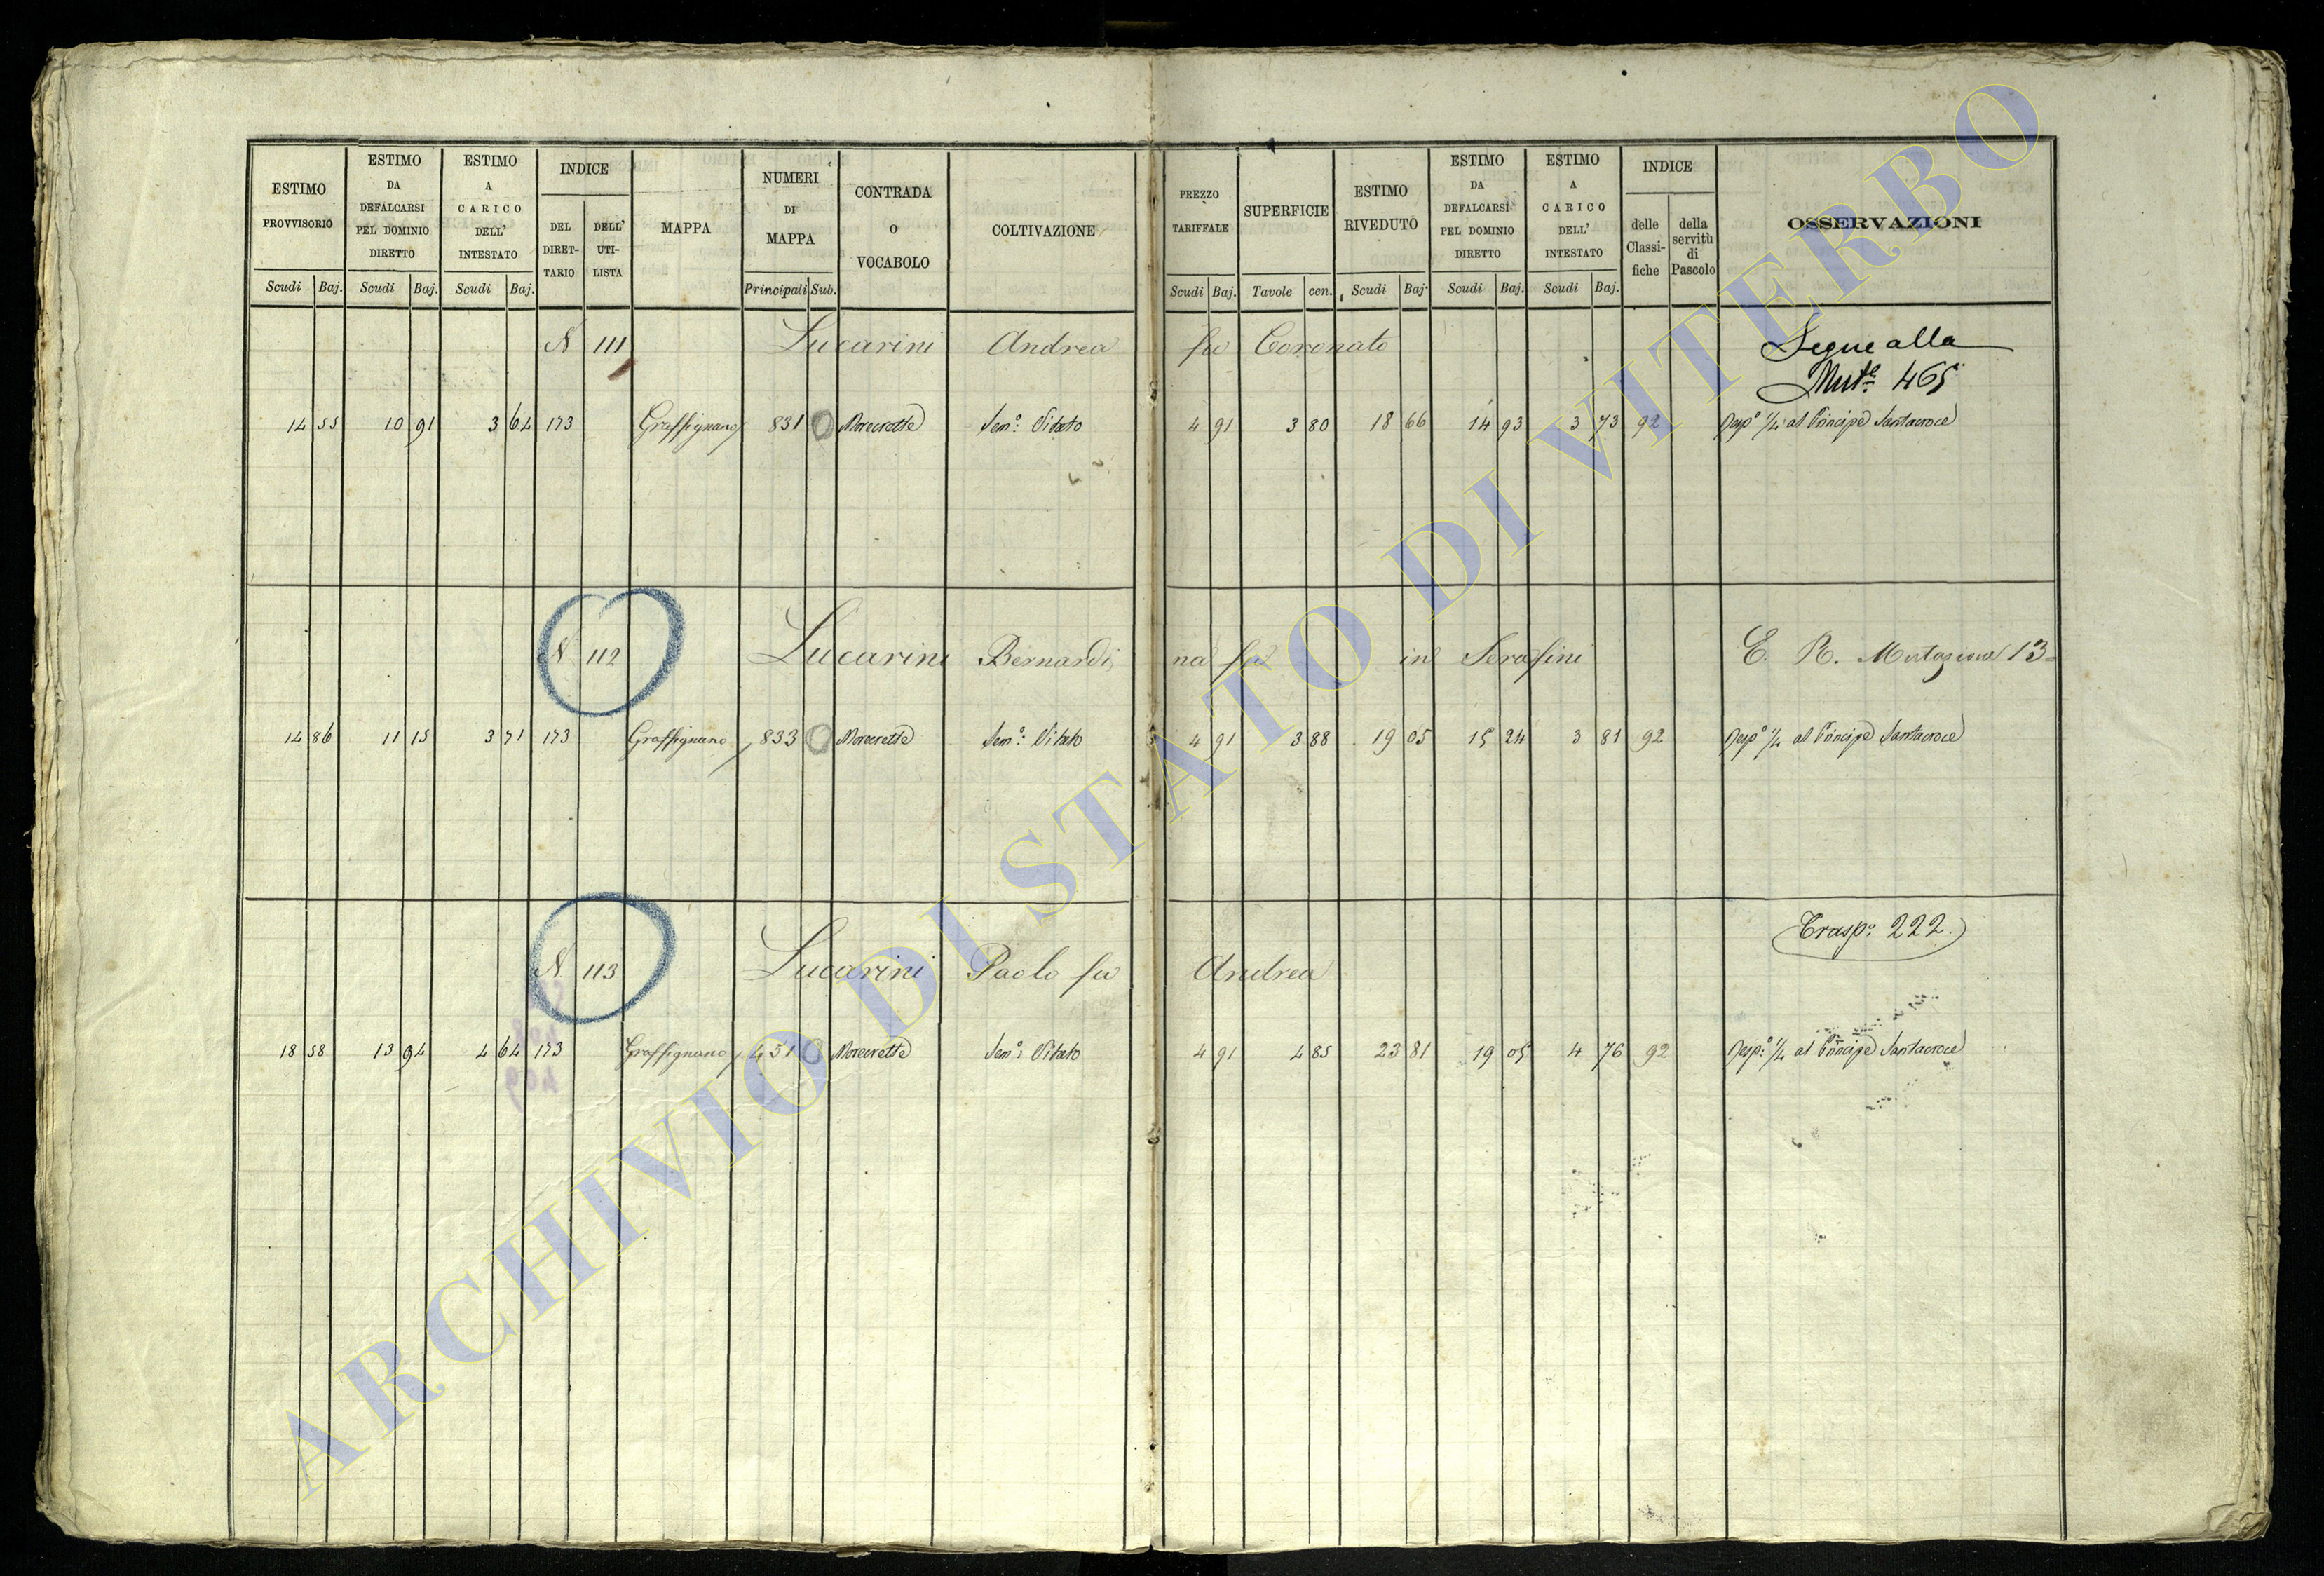 ESTIMO PROVVISORIO
Scudi Baj.
ESTIMO DA DEFALCARSI PEL DOMINIO DIRETTO
Scudi Baj.
ESTIMO A CARICO DELL' INTESTATO
Scudi Baj.
INDICE
DEL DIRET-TARIO
DELL' UTI-LISTA
MAPPA
NUMERI DI MAPPA
Principali Sub.
CONTRADA O VOCABOLO
COLTIVAZIONE
PREZZO TARIFFALE
Scudi Baj.
SUPERFICIE
Tavole cen.
ESTIMO RIVEDUTO
Scudi Baj.
ESTIMO DA DEFALCARSI PEL DOMINIO DIRETTO
Scudi Baj.
ESTIMO A CARICO DELL' INTESTATO
Scudi Baj.
INDICE
delle Classi-fiche
della servitù di Pascolo
OSSERVAZIONI
N 111 Lucarini Andrea fu Coronato Segue alla
Mut.e 465
14 55 10 91 3 64 173 Graffignano 831 Morecrette Sem.o Vitato 4 91 3 80 18 66 14 93 3 73 92 Risp.o 1/4 al Principe Santacroce
N 112 Lucarini Bernardina fu in Serafini E. R. Mutazione 13
14 86 11 15 3 71 173 Graffignano 833 Morecrette Sem.o Vitato 4 91 3 88 19 05 15 24 3 81 92 Risp.o 1/4 al Principe Santacroce
Trasp.o 222
N. 113 Lucarini Paolo fu Andrea
18 58 13 94 4 64 173 Graffignano 451 Morecrette Sem.o Vitato 4 91 4 85 23 81 19 05 4 76 92 Risp.o 1/4 al Principe Santacroce
ARCHIVIO DI STATO DI VITERBO